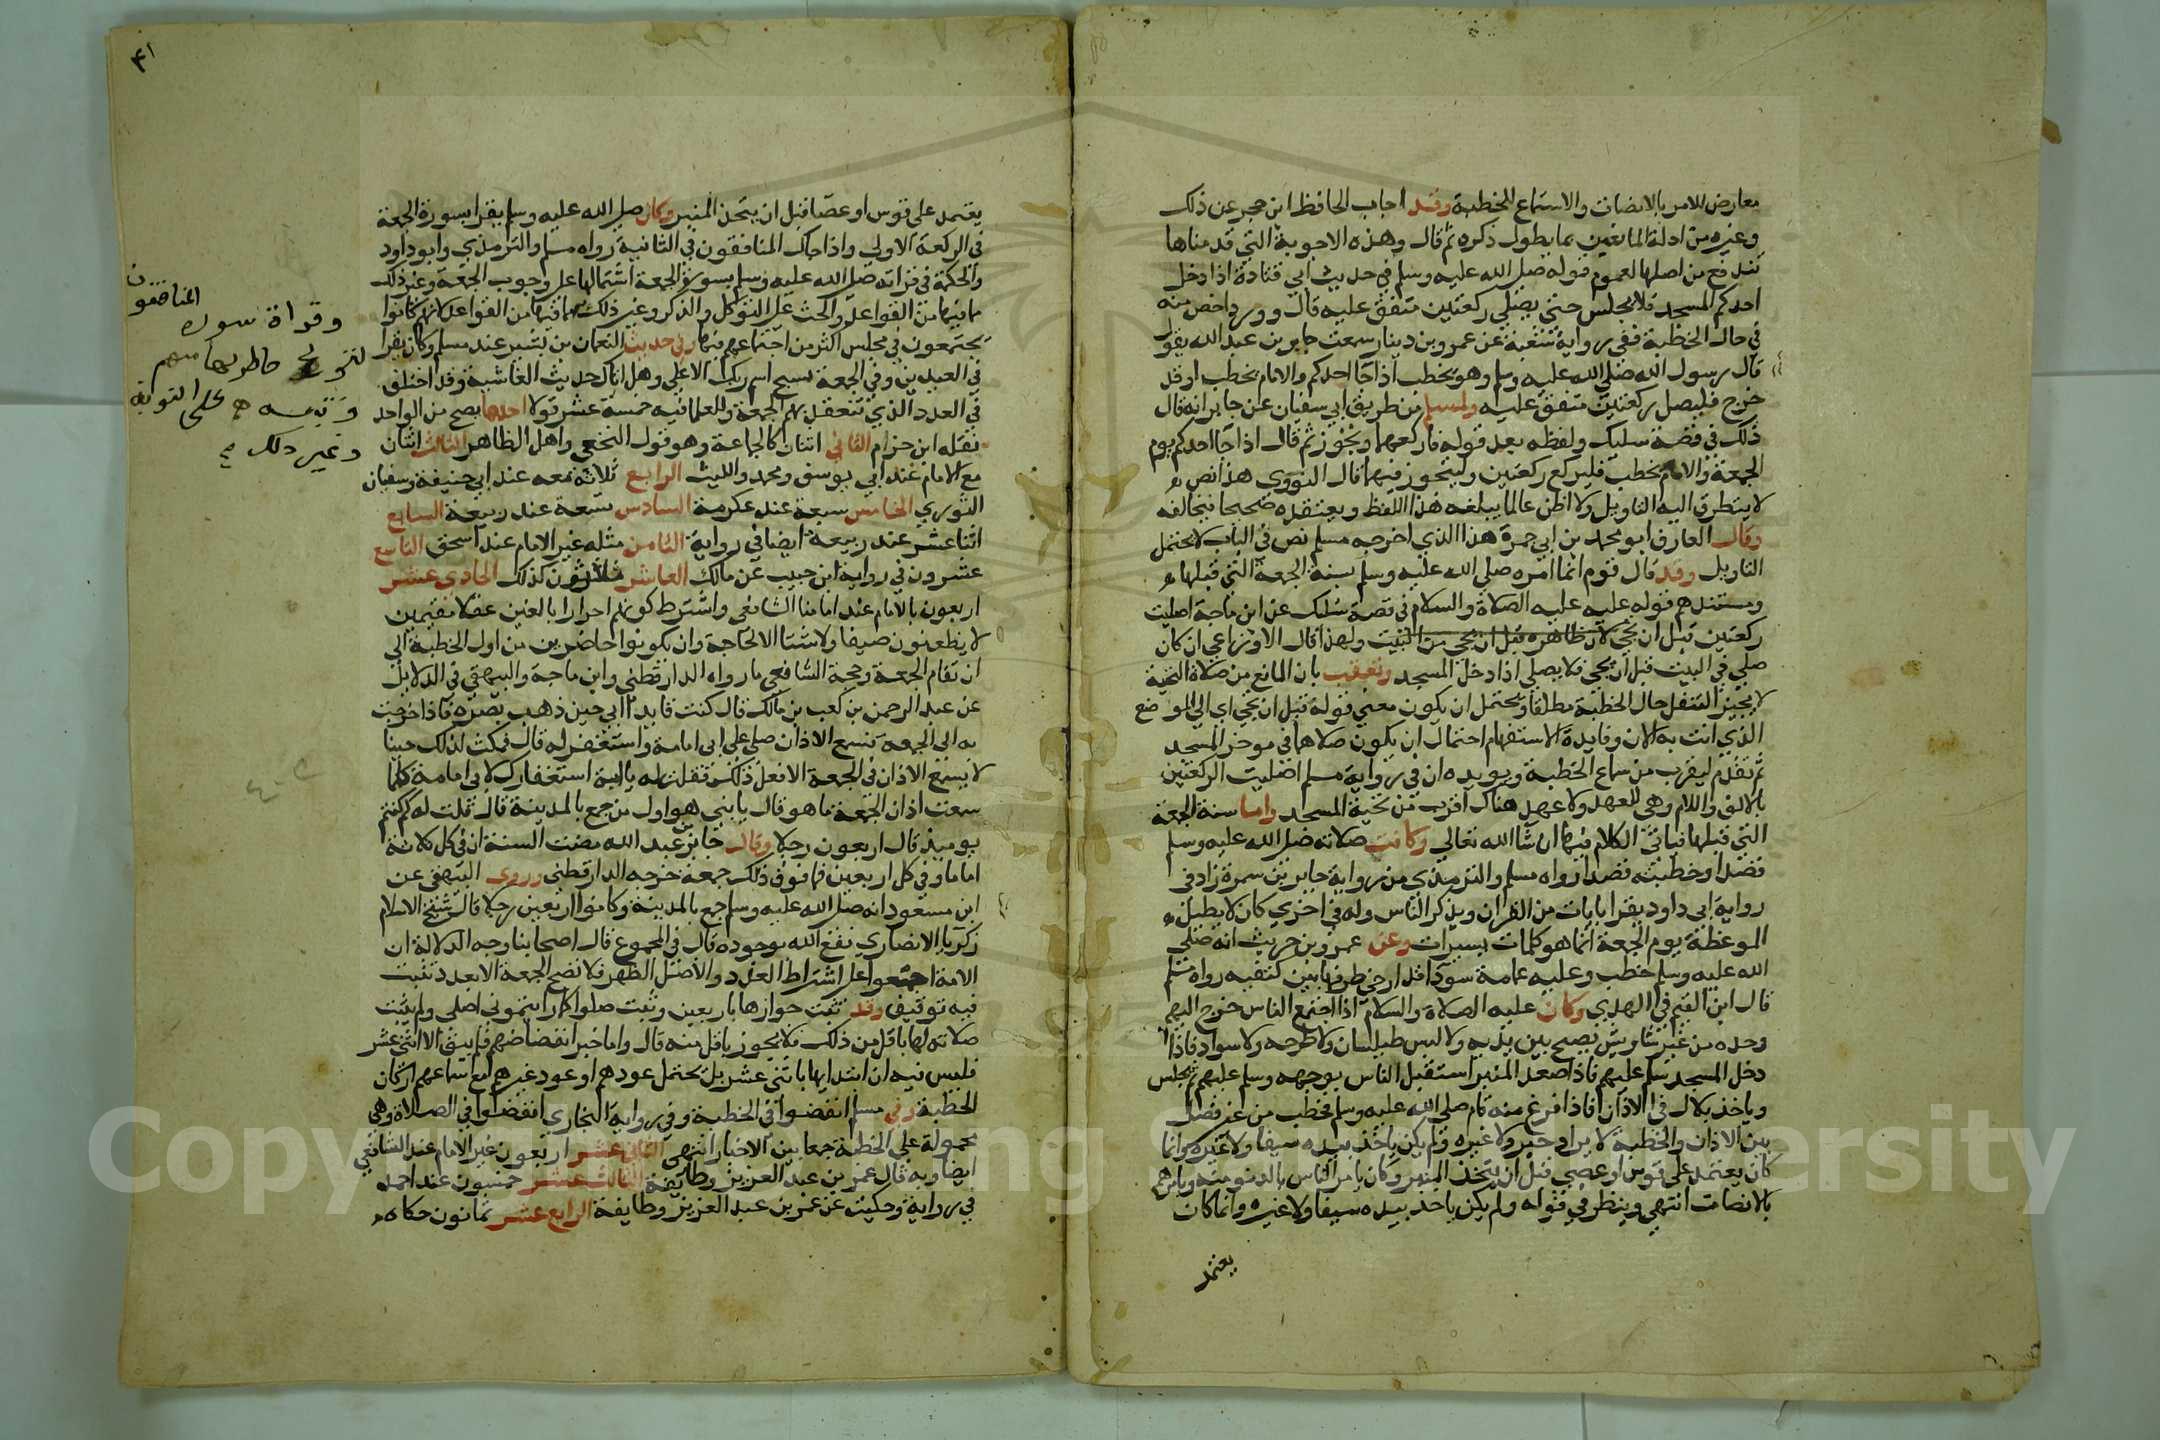 معارض للامر بالانصات والاستماع للخطبة وقد اجاب الحافظ ابن حجر عن ذلك
وغيره من ادلة المانعين بما يطول ذكره ثم قال وهذه الاجوبة التي قدمناها
تندفع من اصلها لعموم قوله صلى الله عليه وسلم في حديث ابي قتادة اذا دخل
احدكم المسجد فلا يجلس حتى يصلي ركعتين متفق عليه قال وورد اخص منه
في حال الخطبة ففي رواية شعبة عن عمرو بن دينار سمعت جابر بن عبد الله يقول
قال رسول الله صلى الله عليه وسلم وهو يخطب اذا جا احدكم والامام يخطب او قد
خرج فليصل ركعتين متفق عليه ولمسلم من طريق ابي سفيان عن جابر انه قال
ذلك في قصة سليك ولفظه بعد قوله فاركعهما وتجوز ثم قال اذا جا احدكم يوم
الجمعة والامام يخطب فليركع ركعتين وليتجوز فيهما قال النووي هذا نص
لا يتطرق اليه التاويل ولا اظن عالما يبلغه هذا اللفظ ويعتقده صحيحا فيخالفه
وقال العارف ابو محمد بن ابي جمرة هذا الذي اخرجه مسلم نص في الباب لا يحتمل
التاويل وقد قال قوم انما امره صلى الله عليه وسلم بسنة الجمعة التي قبلها
ومستندهم قوله عليه عليه الصلاة والسلام في قصة سليك عن ابن ماجة اصليت
ركعتين قبل ان تجي لان ظاهره قبل ان يجي من البيت ولهذا قال الاوزاعي ان كان
صلي في البيت قبل ان يجي فلا يصلي اذا دخل المسجد وتعقب بان المانع من صلاة التحية
لا يجيز التنفل حال الخطبة مطلقا ويحتمل ان يكون معني قوله قبل ان تجي اي الي الموضع
الذي انت به الان وفايدة الاستفهام احتمال ان يكون صلاها في موخر المسجد
ثم تقدم ليقرب من سماع الخطبة ويويده ان في رواية مسلم اصليت الركعتين
بالالف واللام وهي للعهد ولا عهد هناك اقرب من تحية المسجد واما سنة الجمعة
التي قبلها فياتي الكلام فيها ان شا الله تعالي وكانت صلاته صلى الله عليه وسلم
قصدا وخطبته قصدا رواه مسلم والترمذي من رواية جابر بن سمرة زاد في
رواية ابي داود يقرا بايات من القران ويذكر الناس وله في اخري كان لا يطيل
الموعظة يوم الجمعة انما هو كلمات يسيرات وعن عمرو بن حريث انه صلى
الله عليه وسلم خطب وعليه عمامة سودا قد ارخي طرفها بين كتفيه رواه مسلم
قال ابن القيم في الهدي وكان عليه الصلاة والسلام اذا اجتمع الناس خرج اليهم
وحده من غير شاويش يصيح بين يديه ولا لبس طيلسان ولا طرحه ولا سواد فاذا
دخل المسجد سلم عليهم فاذا صعد المنبر استقبل الناس بوجهه وسلم عليهم ثم يجلس
وياخذ بلال في الاذان فاذا فرغ منه قام صلى الله عليه وسلم فخطب من غير فصل
بين الاذان والخطبة لا بيراد خبر ولا غيره ولم يكن ياخذ بيده سيفا ولا غيره وانما
كان يعتمد على قوس او عصي قبل ان يتخذ المنبر وكان يامر الناس بالدنو منه ويامرهم
بالانصات انتهي وينظر في قوله ولم يكن ياخذ بيده سيفا ولا غيره وانما كان
يعتمد
٤١
يعتمد على قوس او عصا قبل ان يتخذ المنبر وكان صلى الله عليه وسلم يقرا بسورة الجمعة
في الركعة الاولي واذا جاك المنافقون في الثانية رواه مسلم والترمذي وابو داود
والحكمة في قراته صلى الله عليه وسلم بسورة الجمعة اشتمالها على وجوب الجمعة وغير ذلك
مما فيها من القواعد والحث على التوكل والذكر وغير ذلك مما فيها من القواعد لانهم كانوا
يجتمعون في مجلس اكثر من اجتماعهم فيها وفي حديث النعمان بن بشير عند مسلم وكان يقرا
في العيدين وفي الجمعة بسبح اسم ربك الاعلي وهل اتاك حديث الغاشية وقد اختلف
في العدد الذي تنعقد بهم الجمعة وللعلما فيه خمسة عشر قولا احدها يصح من الواحد
نقله ابن حزم الثاني اثنان كالجماعة وهو قول النخعي واهل الظاهر الثالث اثنان
مع الامام عند ابي يوسف ومحمد والليث الرابع ثلاثة معه عند ابي حنيفة وسفيان
الثوري الخامس سبعة عند عكرمة السادس تسعة عند ربيعة السابع
اثنا عشر عند ربيعة ايضا في رواية الثامن مثله غير الامام عند اسحق التاسع
عشرون في رواية ابن حبيب عن مالك العاشر ثلاثون كذلك الحادي عشر
اربعون بالامام عند امامنا الشافعي واشترط كونهم احرارا بالغين عقلا مقيمين
لا يظعنون صيفا ولا شتا الا لحاجة وان يكونوا حاضرين من اول الخطبة الي
ان تقام الجمعة وحجة الشافعي ما رواه الدارقطني وابن ماجة والبيهقي في الدلايل
عن عبد الرحمن بن كعب بن مالك قال كنت قايد ابي حين ذهب بصره فاذا خرجت
به الى الجمعة فسمع الاذان صلى على ابي امامة واستغفر له قال فمكث لذلك حينا
لا يسمع الاذان في الجمعة الا فعل ذلك فقلت له يا ابة استغفارك لابي امامة كلما
سمعت اذان الجمعة ما هو قال يا بني هو اول من جمع بالمدينة قال قلت له كم كنتم
يوميذ قال اربعون رجلا وقال جابر بن عبد الله مضت السنة ان في كل ثلاثة
اماما وفي كل اربعين فما فوق ذلك جمعة خرجه الدارقطني وروي البيهقي عن
ابن مسعود انه صلى الله عليه وسلم جمع بالمدينة وكانوا اربعين رجلا قال شيخ الاسلام
زكريا الانصاري نفع الله بوجوده قال في المجموع قال اصحابنا وجه الدلالة ان
الامة اجتمعوا على اشتراط العدد والاصل الظهر فلا تصح الجمعة الا بعدد ثبت
فيه توقيف وقد ثبت جوازها باربعين وثبت صلوا كما رايتموني اصلي ولم يثبت
صلاته لها باقل من ذلك فلا يجوز باقل منه قال واما خبر انفضاضهم فلم يبق الا اثني عشر
فليس فيه ان ابتداها باثني عشر بل يحتمل عودهم او عود غيرهم مع سماعهم اركان
الخطبة وفي مسلم انفضوا في الخطبة وفي رواية البخاري انفضوا في الصلاة وهي
محمولة علي الخطبة جمعا بين الاخبار انتهى الثاني عشر اربعون غير الامام عند الشافعي
ايضا وبه قال عمر بن عبد العزيز وطايفة الثالث عشر خمسون عند احمد
في رواية وحكيت عن عمر بن عبد العزيز وطايفة الرابع عشر ثمانون حكاه
وقراة سورة المنافقون
لتوبيخ حاظريها منهم
وتنبيه على التوبة
وغير ذلك
Copyright © King Saud University